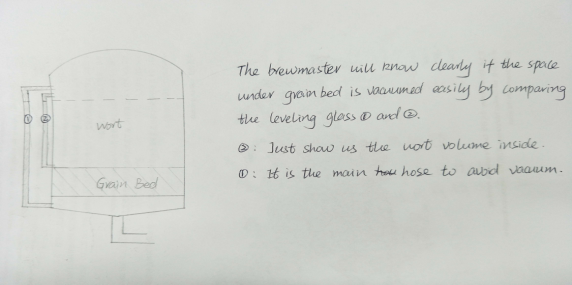 The brewmaster will know clearly if the space
under grain bed is vacuumed easily by comparing
the leveling glass ① and ②.
②: Just show us the wort volume inside.
①: It is the main hose to avoid vacuum.
① ②
wort
Grain Bed